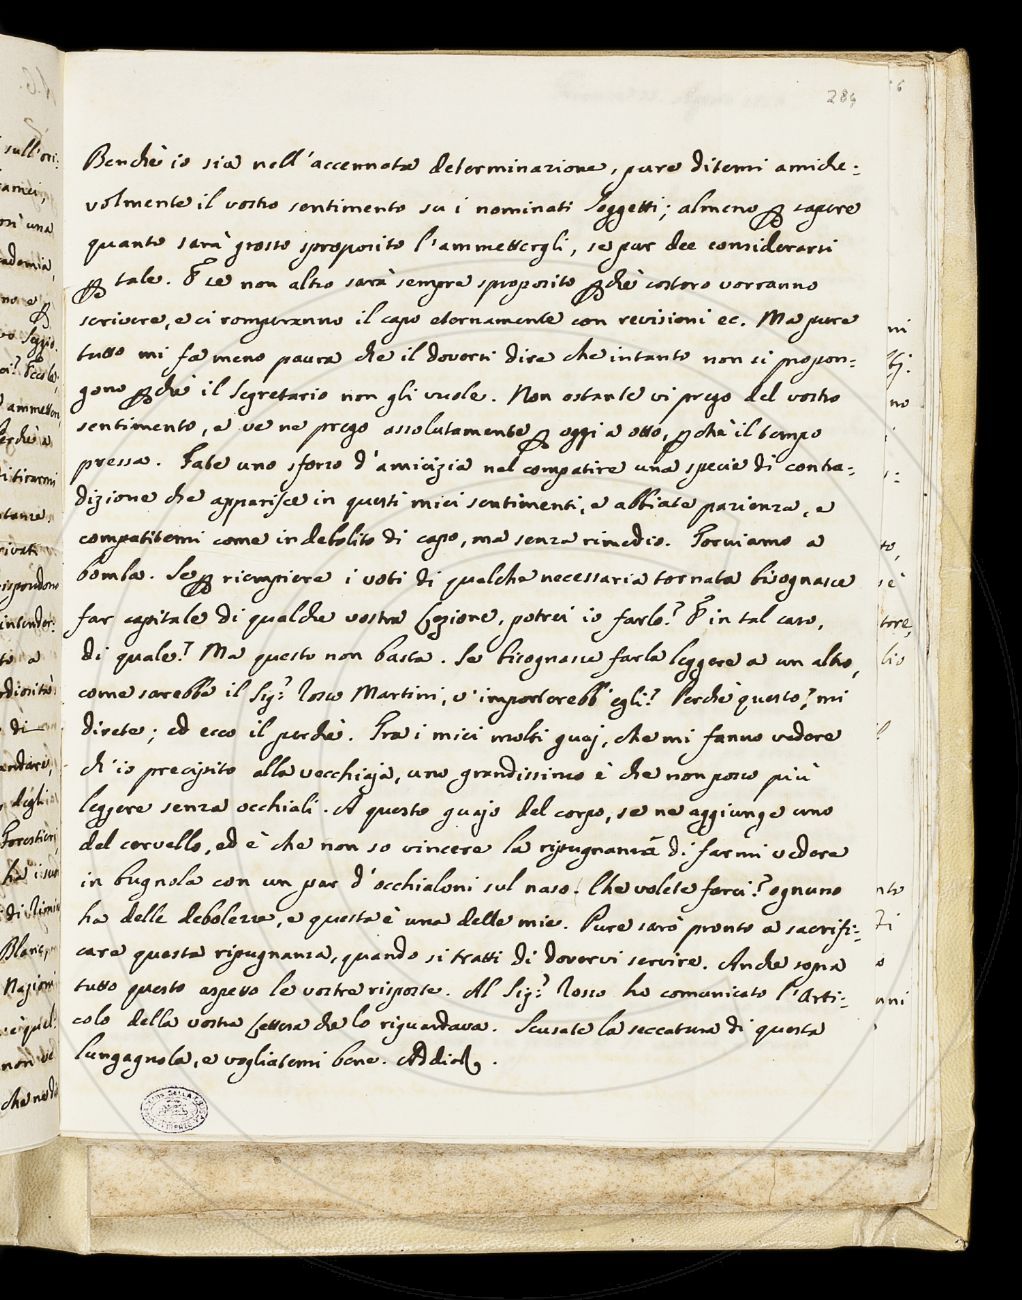 284
Benchè io sia nell'accennata determinazione, pure ditemi amiche=
volmente il vostro sentimento su i nominati Soggetti; almeno ꝑ sapere
quanto sarà grosso sproposito l'ammettergli, se pur dee considerarsi
ꝑ tale. E se non altro sarà sempre sproposito ꝑchè costoro vorranno
scrivere, e ci romperanno il capo eternamente con revisioni ec. Ma pure
tutto mi fa meno paura che il doversi dire che intanto non si propon=
gono ꝑchè il Segretario non gli vuole. Non ostante vi prego del vostro
sentimento, e ve ne prego assolutamente ꝑ oggi a otto, ꝑchè il tempo
pressa. Fate uno sforzo d'amicizia nel compatire una specie di contra=
dizione che apparisce in questi miei sentimenti, e abbiate pazienza, e
compatitemi come indebolito di capo, ma senza rimedio. Torniamo a
bomba. Se ꝑ riempiere i voti di qualche necessaria tornata bisognasse
far capitale di qualche vostra Lezione, potrei io farlo? E in tal caso,
di quale? Ma questo non basta. Se bisognasse farla leggere a un altro,
come sarebbe il Sig.r Rosso Martini, v'importerebb'egli? Perchè questo? mi
direte; ed ecco il perchè. Fra i miei molti guaj, che mi fanno vedere
ch'io precipito alla vecchiaja, uno grandissimo è che non posso più
leggere senza occhiali. A questo guajo del corpo, se ne aggiunge uno
del cervello, ed è che non so vincere la ripugnanza di farmi vedere
in bugnola con un par d'occhialoni sul naso. Che volete farci? ognuno
ha delle debolezze, e questa è una delle mie. Pure sarò pronto a sacrifi=
care questa ripugnanza, quando si tratti di dovervi servire. Anche sopra
tutto questo aspetto le vostre risposte. Al Sig.r Rosso ho comunicato l'Arti=
colo della vostra Lettera che lo riguardava. Scusate la seccatura di questa
lungagnola, e vogliatemi bene. Addio.